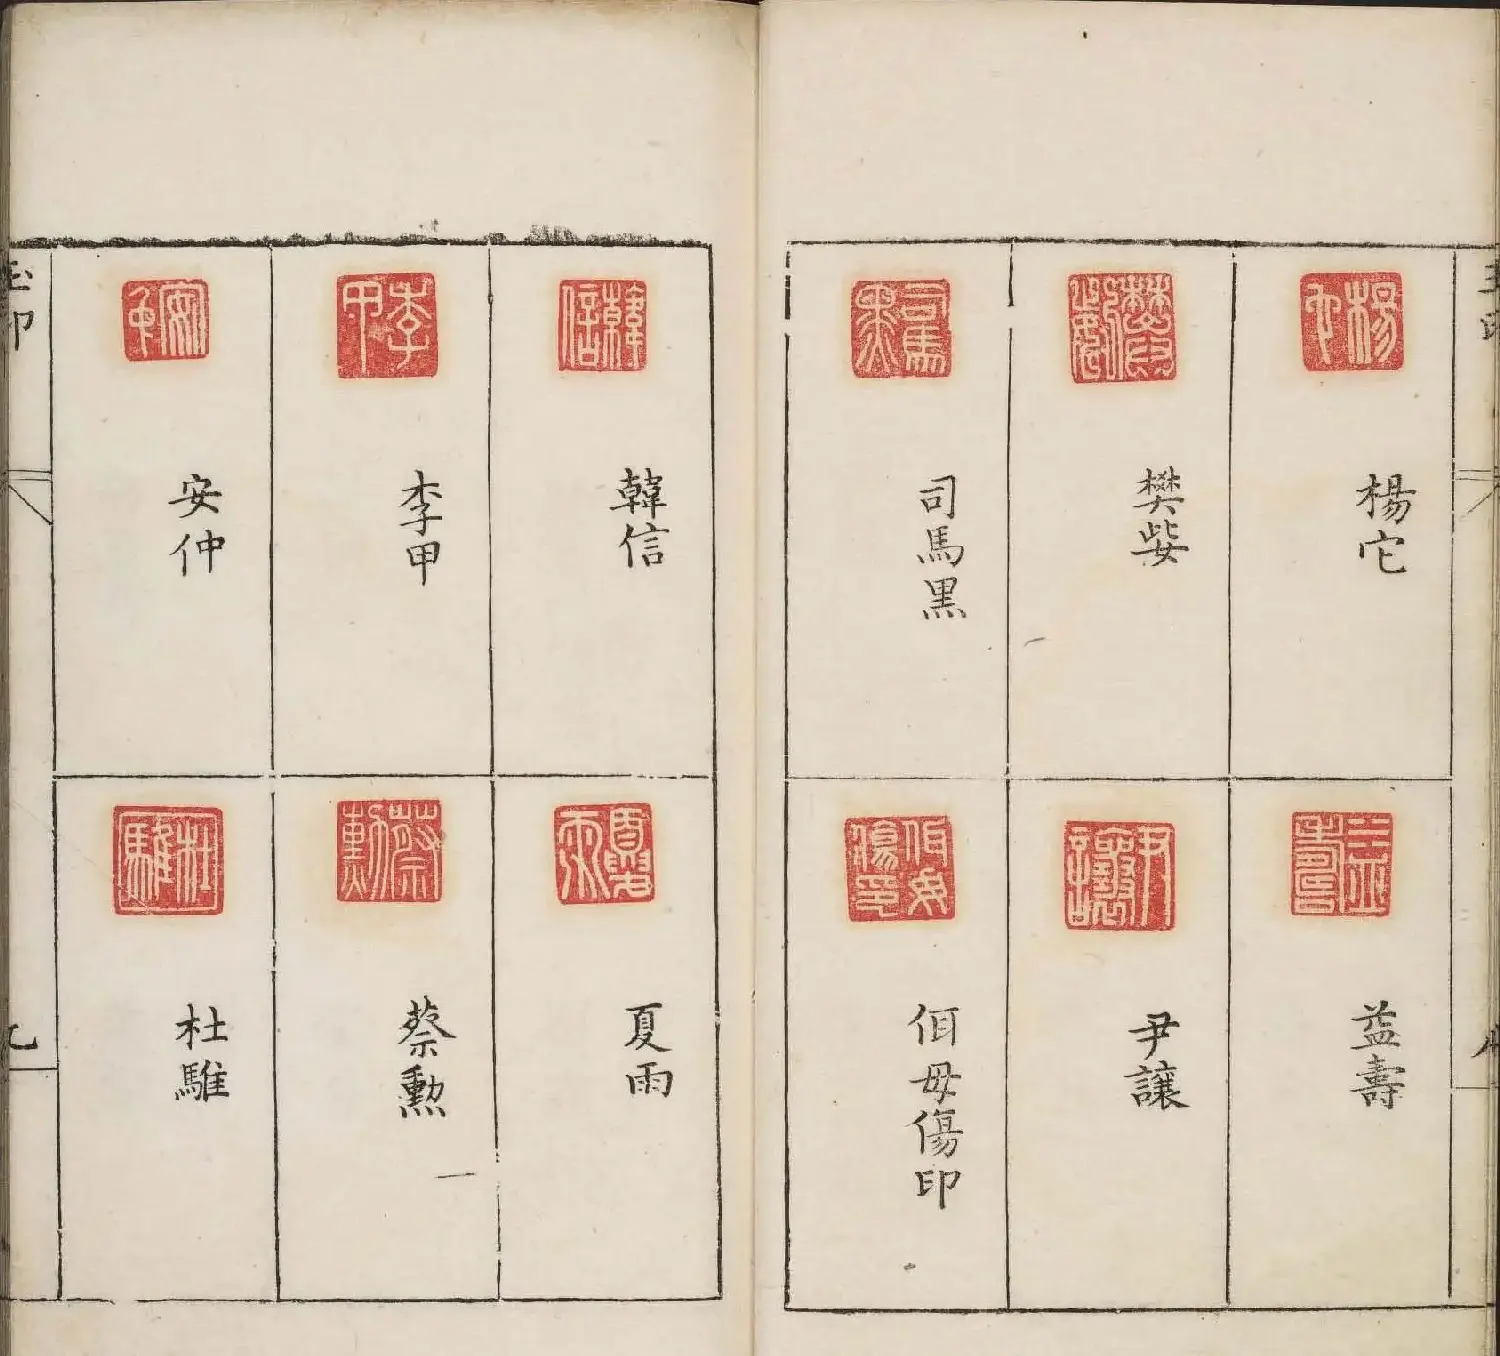 楊它
樊㛗
司馬黑
益壽
尹讓
佴毋傷印
韓信
李甲
安仲
夏雨
蔡勲
杜騅
玉印
九